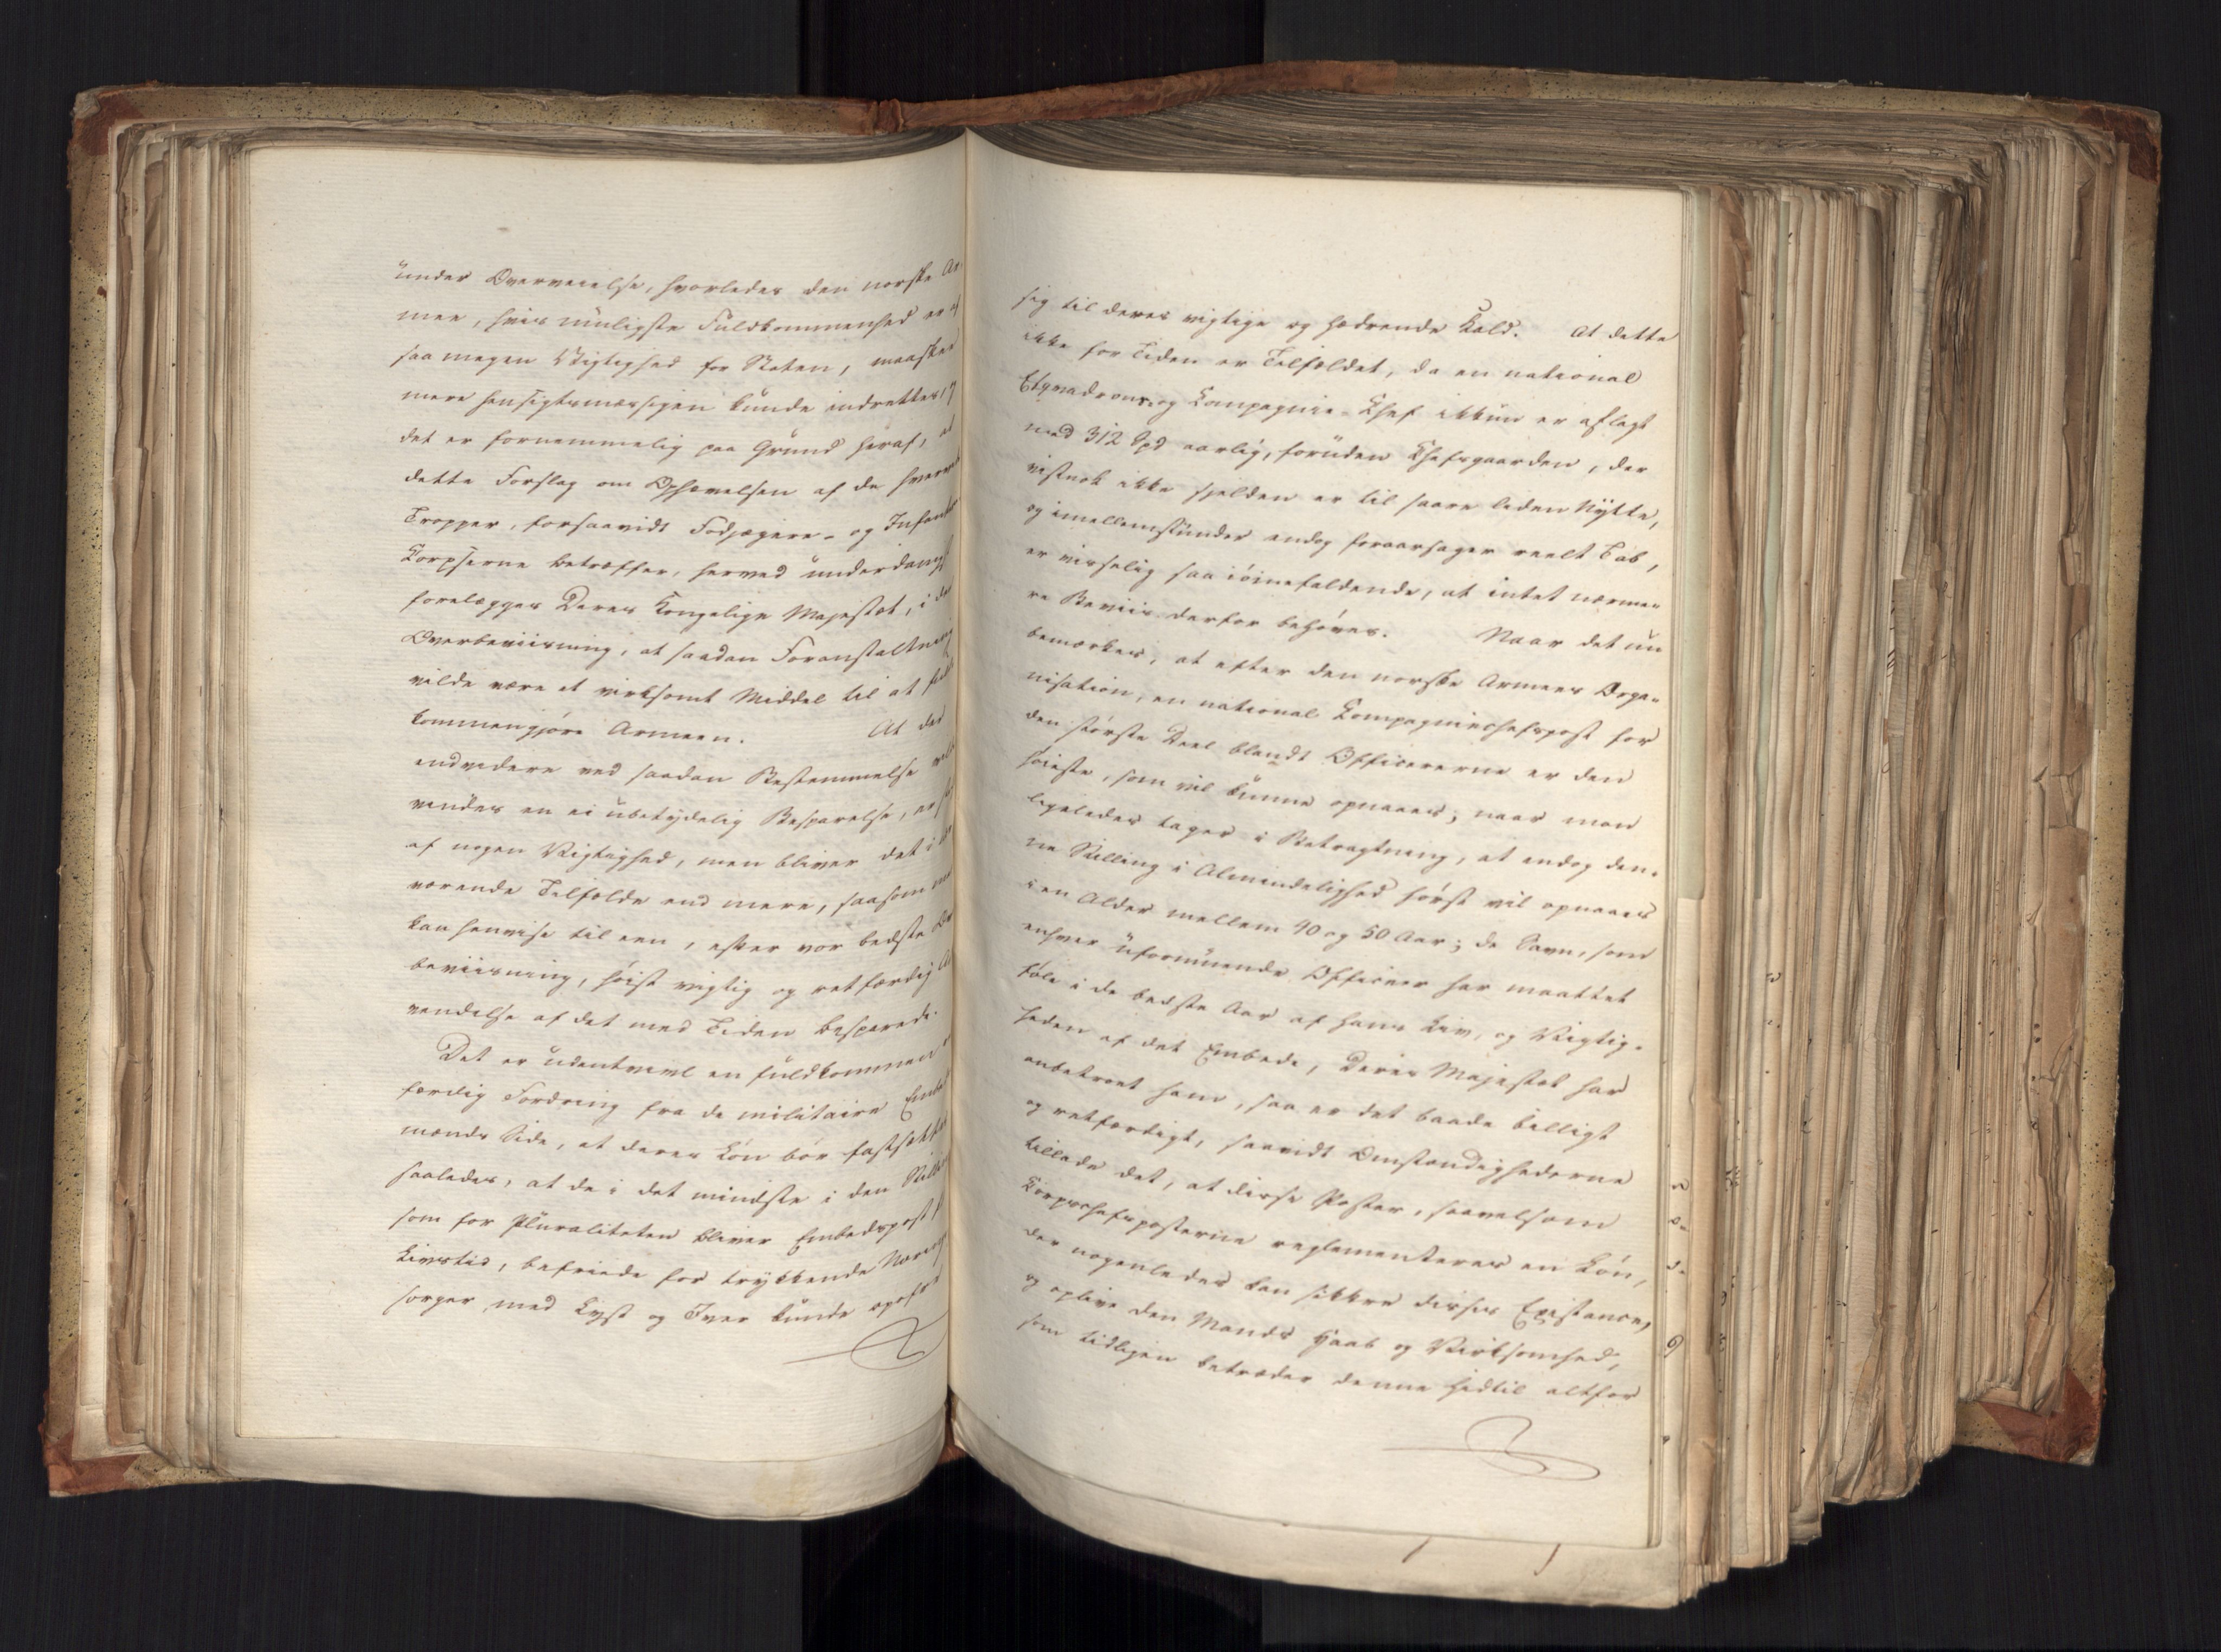 under Overveielse, hvorledes den norske Ar-
mee, hvis muligste Fuldkommenhed er af
saa megen Vigtighed for Staten, maaskee
mere hensigtsmæssigen kunde indrettes,
det er fornemmelig paa Grund heraf, at
dette Forslag om Ophævelsen af de hvervede
Tropper, forsaavidt Fodjægere- og Infanterie
Corpserne betræffer, herved underdanigst
forelægges Deres Kongelige Majestæt, i den
Overbeviisning, at saadan Foranstaltning
vilde være et virksomt Middel til at fuld
kommengjøre Armeen. At der
endvidere ved saadan Bestemmelse vilde
vindes en ei ubetydelig Besparelse, er
af nogen Vigtighed, men bliver det i
værende Tilfælde end mere, saasom man
kan henvise til een, efter vor bedste Over
beviisning, høist vigtig og retfærdig An
vendelse af det med Tiden besparede.
Det er udentvivl en fuldkommen
færdig Fordring fra de militaire Embeds
mænds Side, at deres Løn bør fastsættes
saaledes, at de i det mindste i den Stilling
som for Pluraliteten bliver Embedspost
Livstid, befriede for trykkende Nærings
sorger med Lyst og Iver kunde opofre
sig til deres vigtige og hædrende Kald. At dette
ikke for Tiden er Tilfældet, da en national
Esqvadrons- og Compagnie-Chef ikkun er aflagt
med 312 Spd aarlig, foruden Chefsgaarden, der
vistnok ikke sjelden er til saare liden Nytte,
og imellemstunder endog foraarsager reelt Tab,
er virkelig saa iøinefaldende, at intet nærme-
re Beviis derfor behøves. Naar det nu
bemærkes, at efter den norske Armees Orga-
nisation, en national Compagniechefspost for
den største Deel blandt Officererne er den
høieste, som vil kunne opnaaes; naar man
ligeledes tager i Betragtning, at endog den-
ne Stilling i Almindelighed først vil opnaaes
i en Alder mellem 40 og 50 Aar; de Savn, som
enhver uformuende Officeer har maattet
føle i de bedste Aar af hans Liv, og Vigtig-
heden af det Embede, Deres Majestæt har
anbetroet ham, saa er det baade billigt
og retfærdigt, saavidt Omstændighederne
tillade det, at disse Poster, saavelsom
Corpschefsposterne reglementeres en Løn,
der nogenledes kan sikkre disses Existence,
og oplive den Mands Haab og Virksomhed,
som tidligen betræder denne hidtil altfor